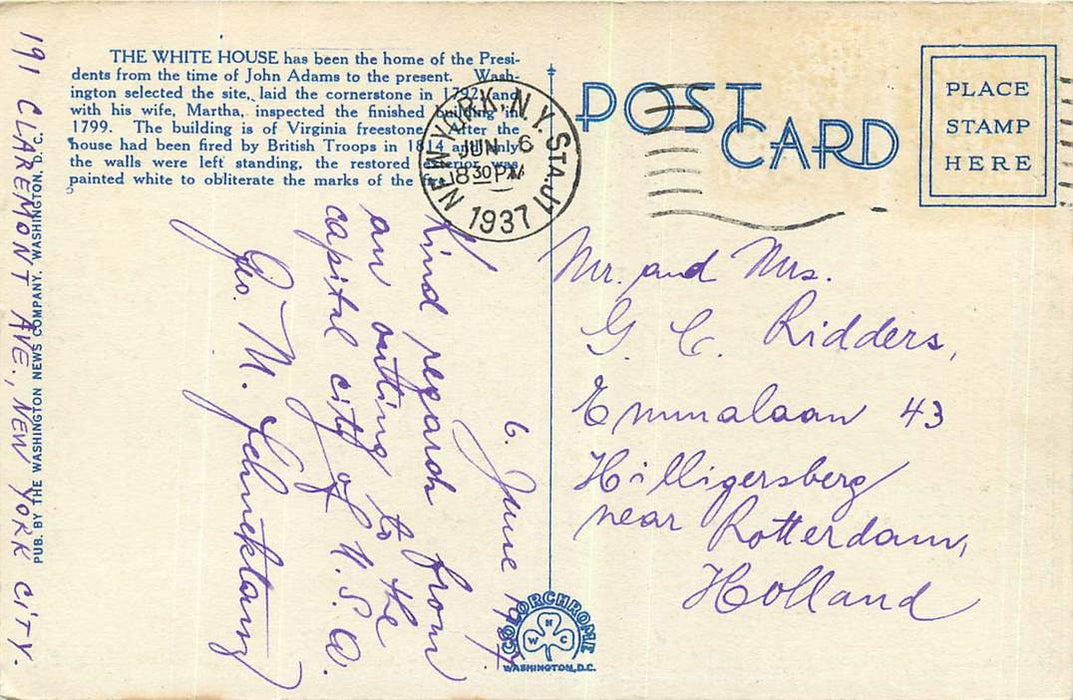 THE WHITE HOUSE has been the home of the Presi-
dents from the time of John Adams to the present. Wash-
ington selected the site, laid the cornerstone in 1792, and
with his wife, Martha, inspected the finished building in
1799. The building is of Virginia freestone. After the
house had been fired by British Troops in 1814 and only
the walls were left standing, the restored exterior was
painted white to obliterate the marks of the
POST
CARD
PLACE
STAMP
HERE
NEW YORK, N.Y. STA. J
JUN 6
8 30 PM
1937
6. June 1937
Kind regards from
an outing to the
capital city of U.S.A.
Geo. M.
191 CLAREMONT AVE., NEW YORK CITY.
PUB. BY THE WASHINGTON NEWS COMPANY, WASHINGTON, D.C.
Mr. and Mrs.
G. C. Ridders,
Emmalaan 43
Hilligersberg
near Rotterdam,
Holland
COLORCHROME
W N C
WASHINGTON, D.C.